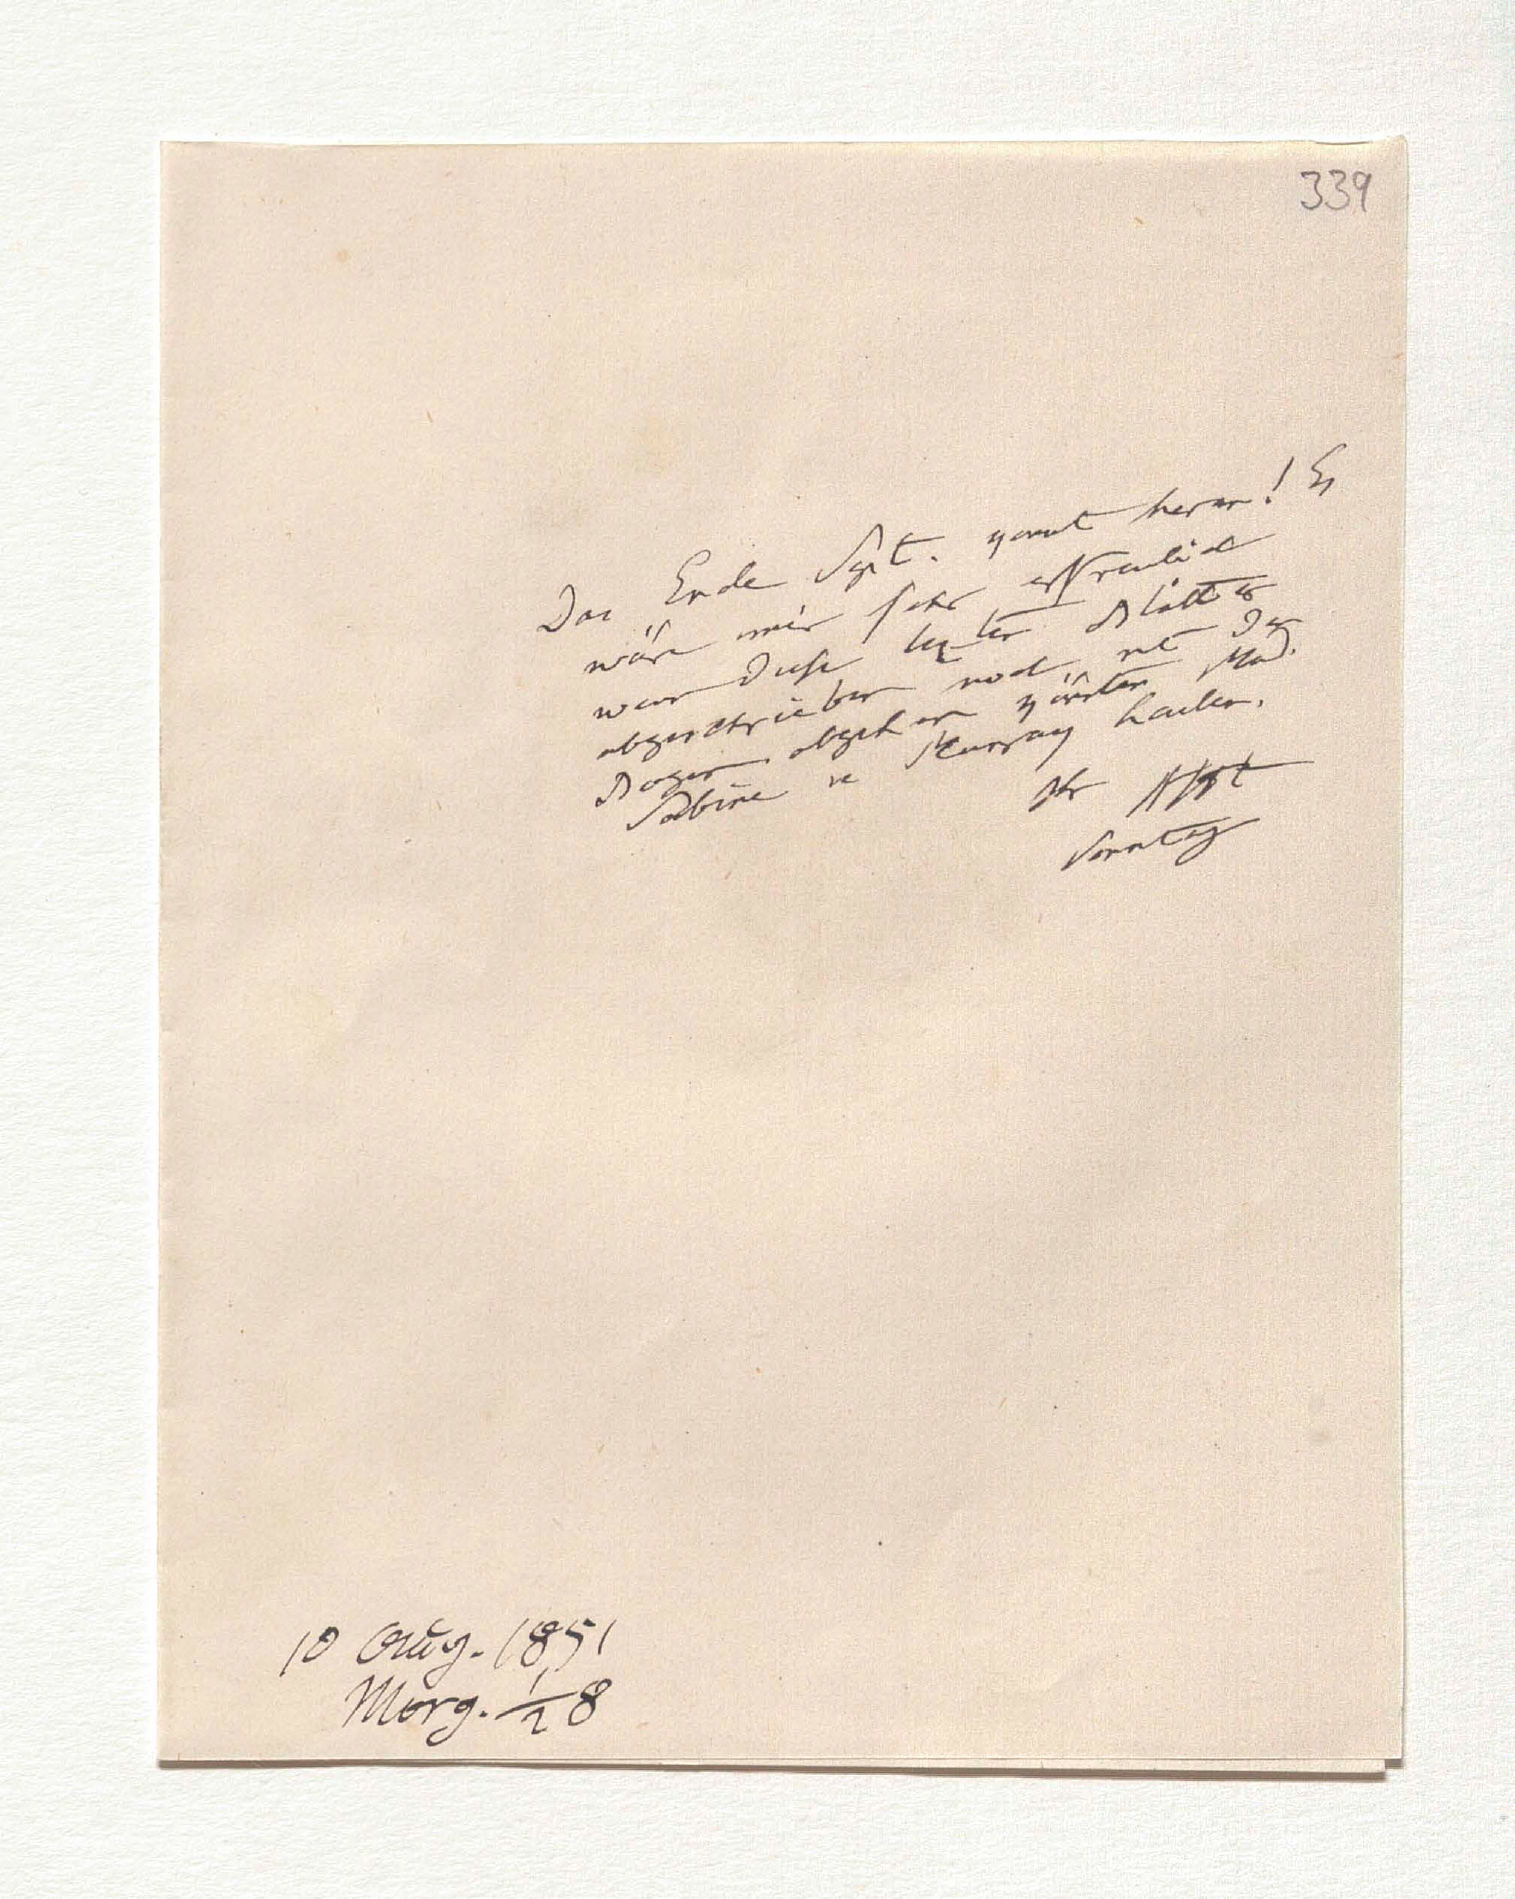 339
Das Ende Spt. gewis herem! Es
wäre mir sehr erfreulich
wen diese lezten Blätter
abgeschrieben noch mit der
Bogen abgehen könten Mad.
Sabine u Murray harlen.
Ihr AHt
Sonntag
10 Aug. 1851
Morg. 1/2 8